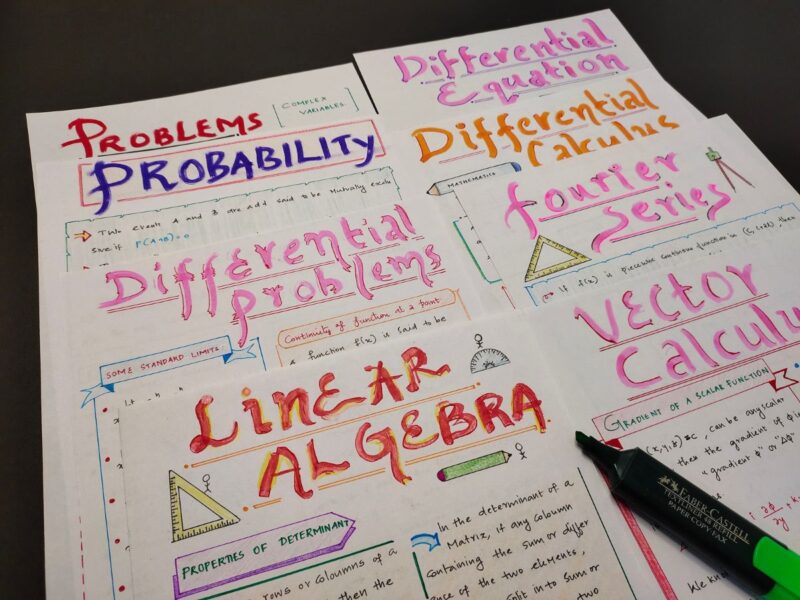 PROBLEMS
COMPLEX
VARIABLES
PROBABILITY
Two events A and B are said to be Mutually
P(A∩B)=0
Differential
Equation
Differential
Calculus
MATHEMATICS
Fourier
Series
If f(x) is piecewise continuous function in then
Differential
problems
SOME STANDARD LIMITS
Continuity of function at a point
A function f(x) is said to be
VECTOR
Calculu
GRADIENT OF A SCALAR FUNCTION
(x,y,z)=c, can be any scalar
then the gradient of
"gradient Φ" or "ΔΦ"
We kno
LINEAR
ALGEBRA
PROPERTIES OF DETERMINANT
rows or coloumns of a
then the
In the determinant of a
Matrix, if any coloumn
Containing the sum or differ
ence of the two elements,
split in to sum or
two
FABER-CASTELL
TEXTLINER 48 REFILL
PAPER COPY FAX